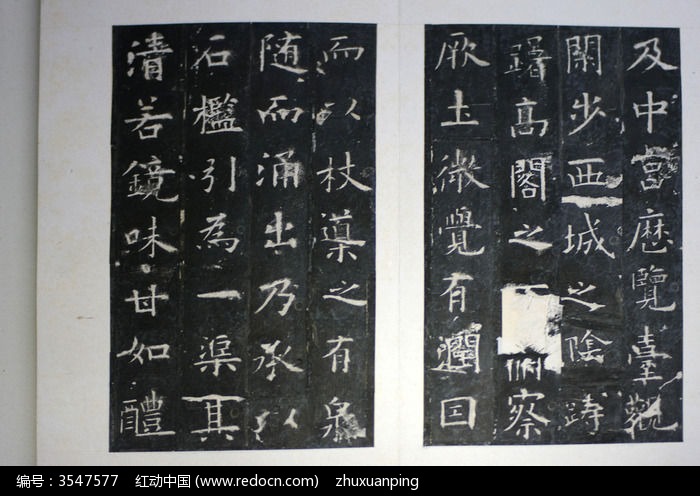 及中宫歷覽臺觀
閑步西城之陰躊
躇高閣之下俯察
厥土微覺有潤因
而以杖導之有泉
随而涌出乃承以
石檻引為一渠其
清若鏡味甘如醴
编号：3547577 红动中国 (www.redocn.com) zhuxuanping